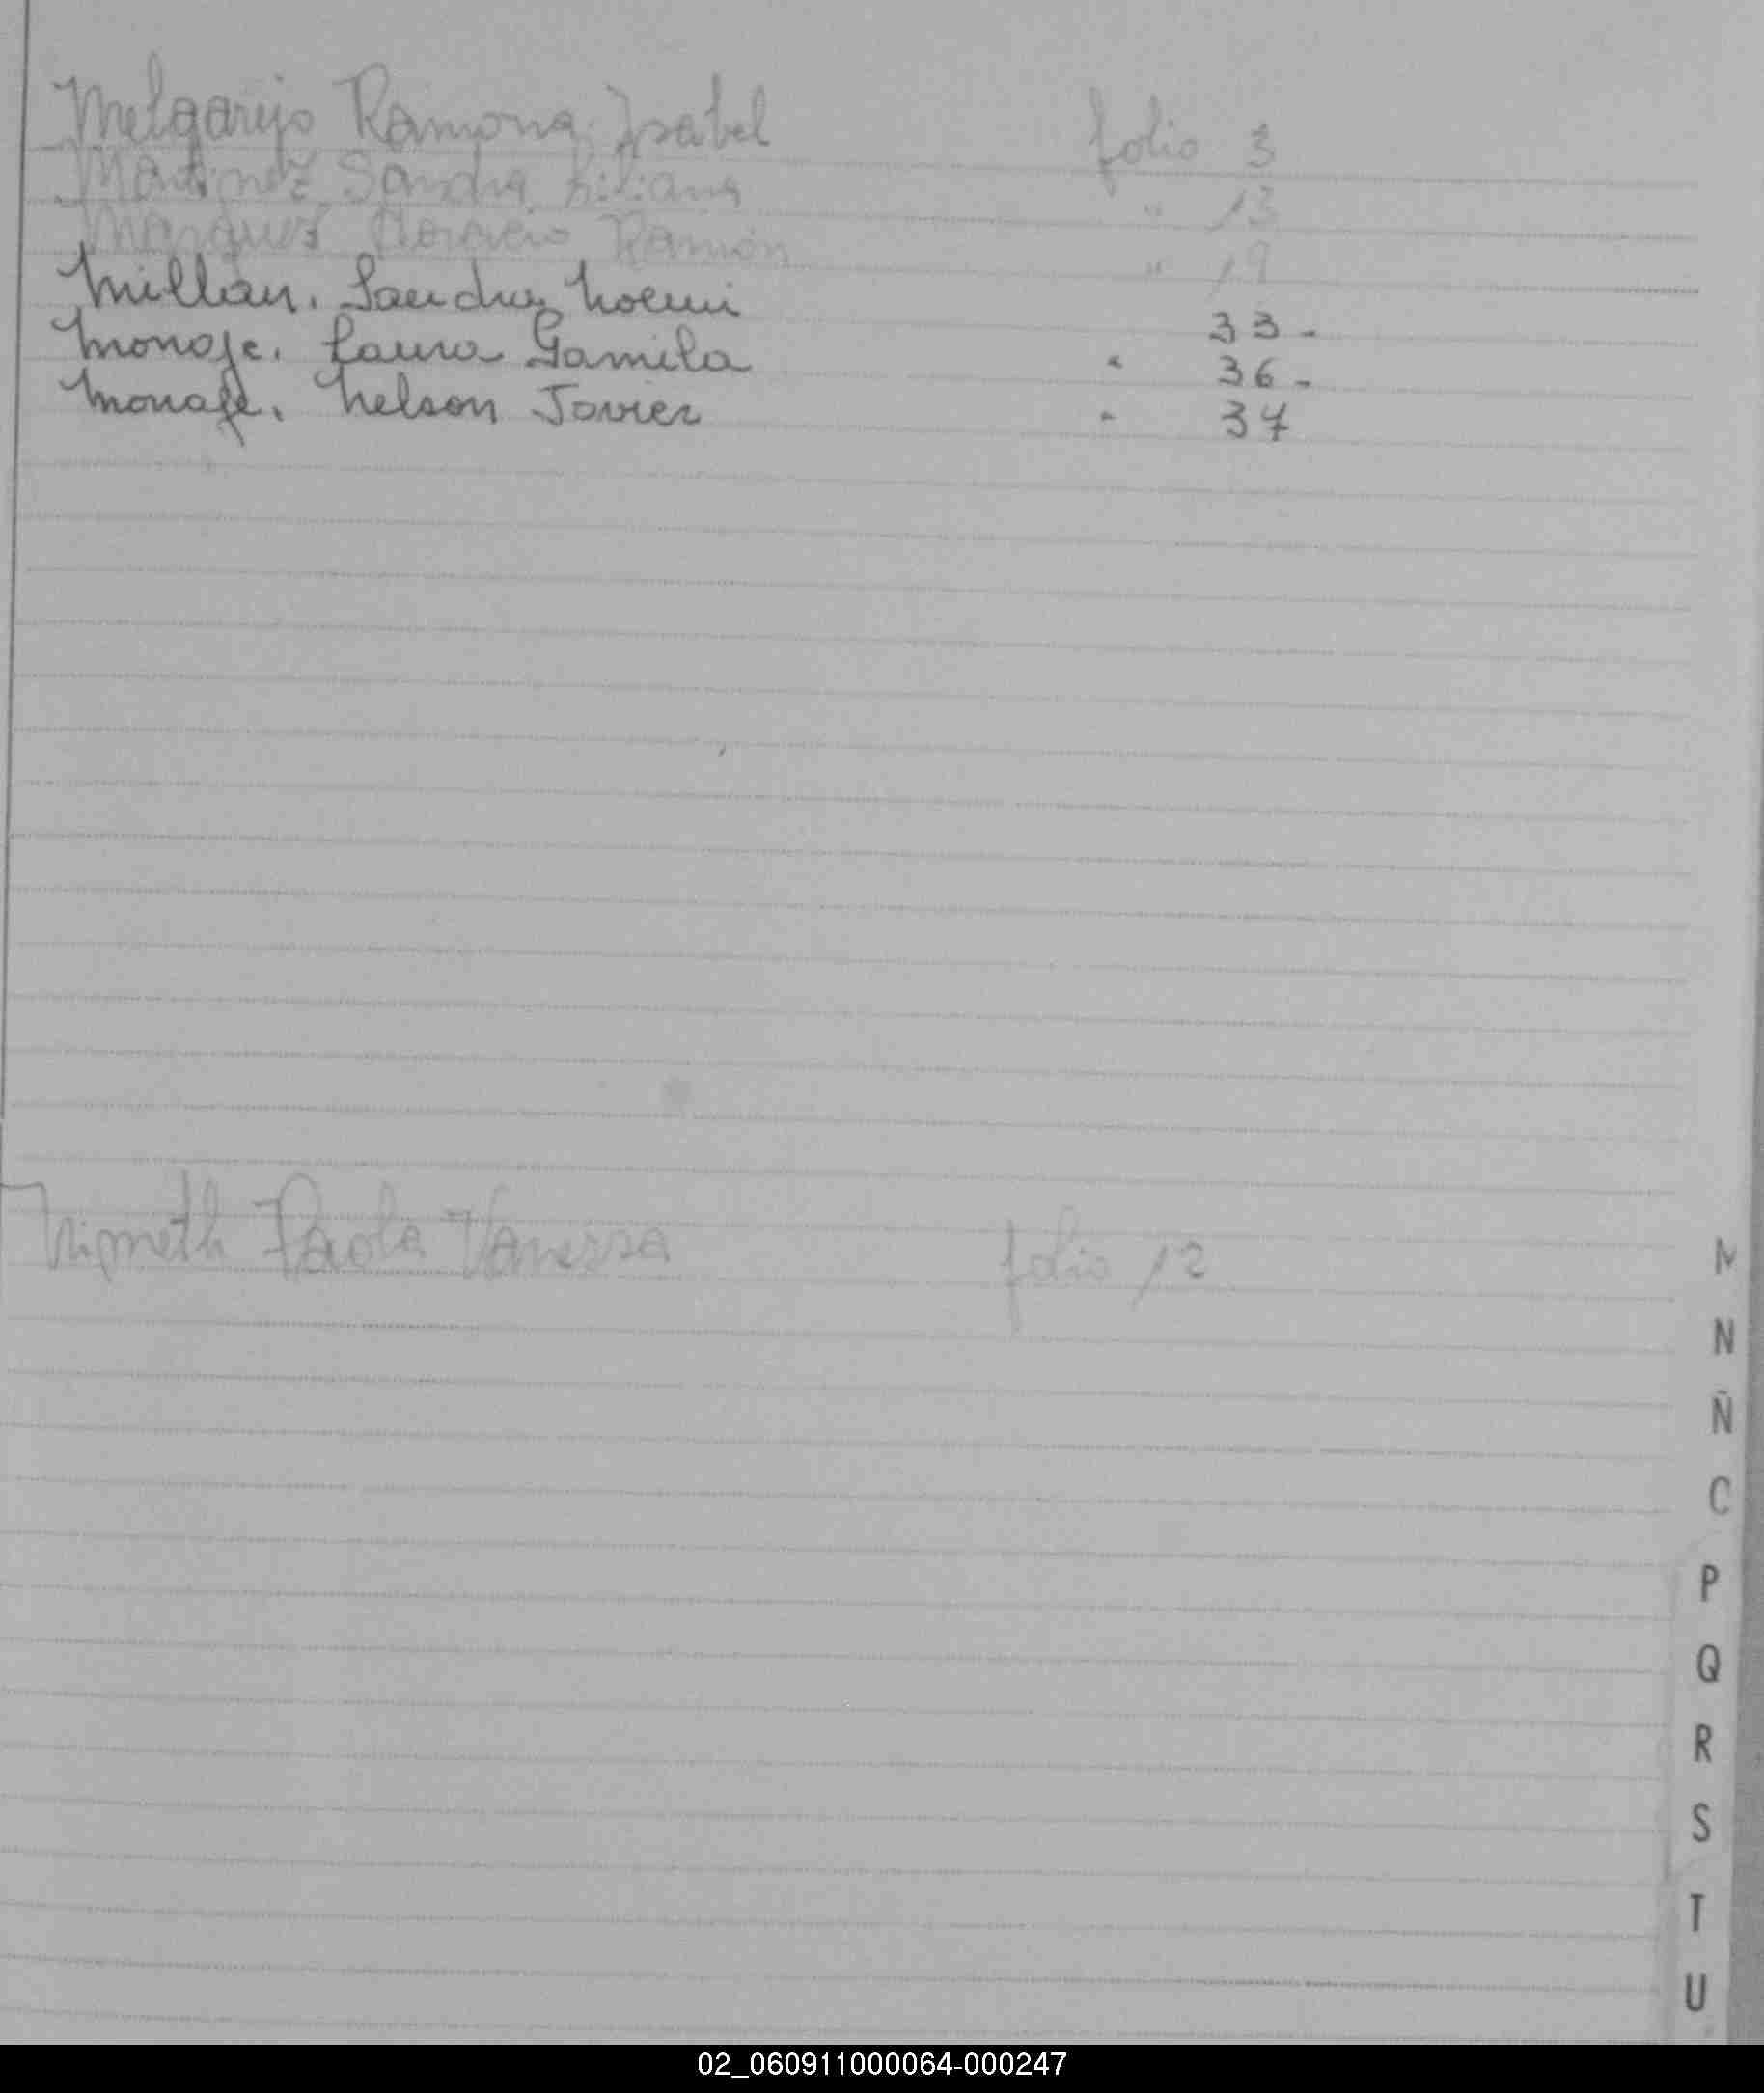 Melgarejo Ramona Isabel folio 3
Martinez Sandra Liliana " 13
Marquez Horacio Ramón " 19
Millan, Sandra Noemi 33-
Monaje, Laura Gamila " 36-
Monaje, Nelson Javier " 37
Nigmeth Paola Vanessa folio 12
M
N
Ñ
O
P
Q
R
S
T
U
02_060911000064-000247